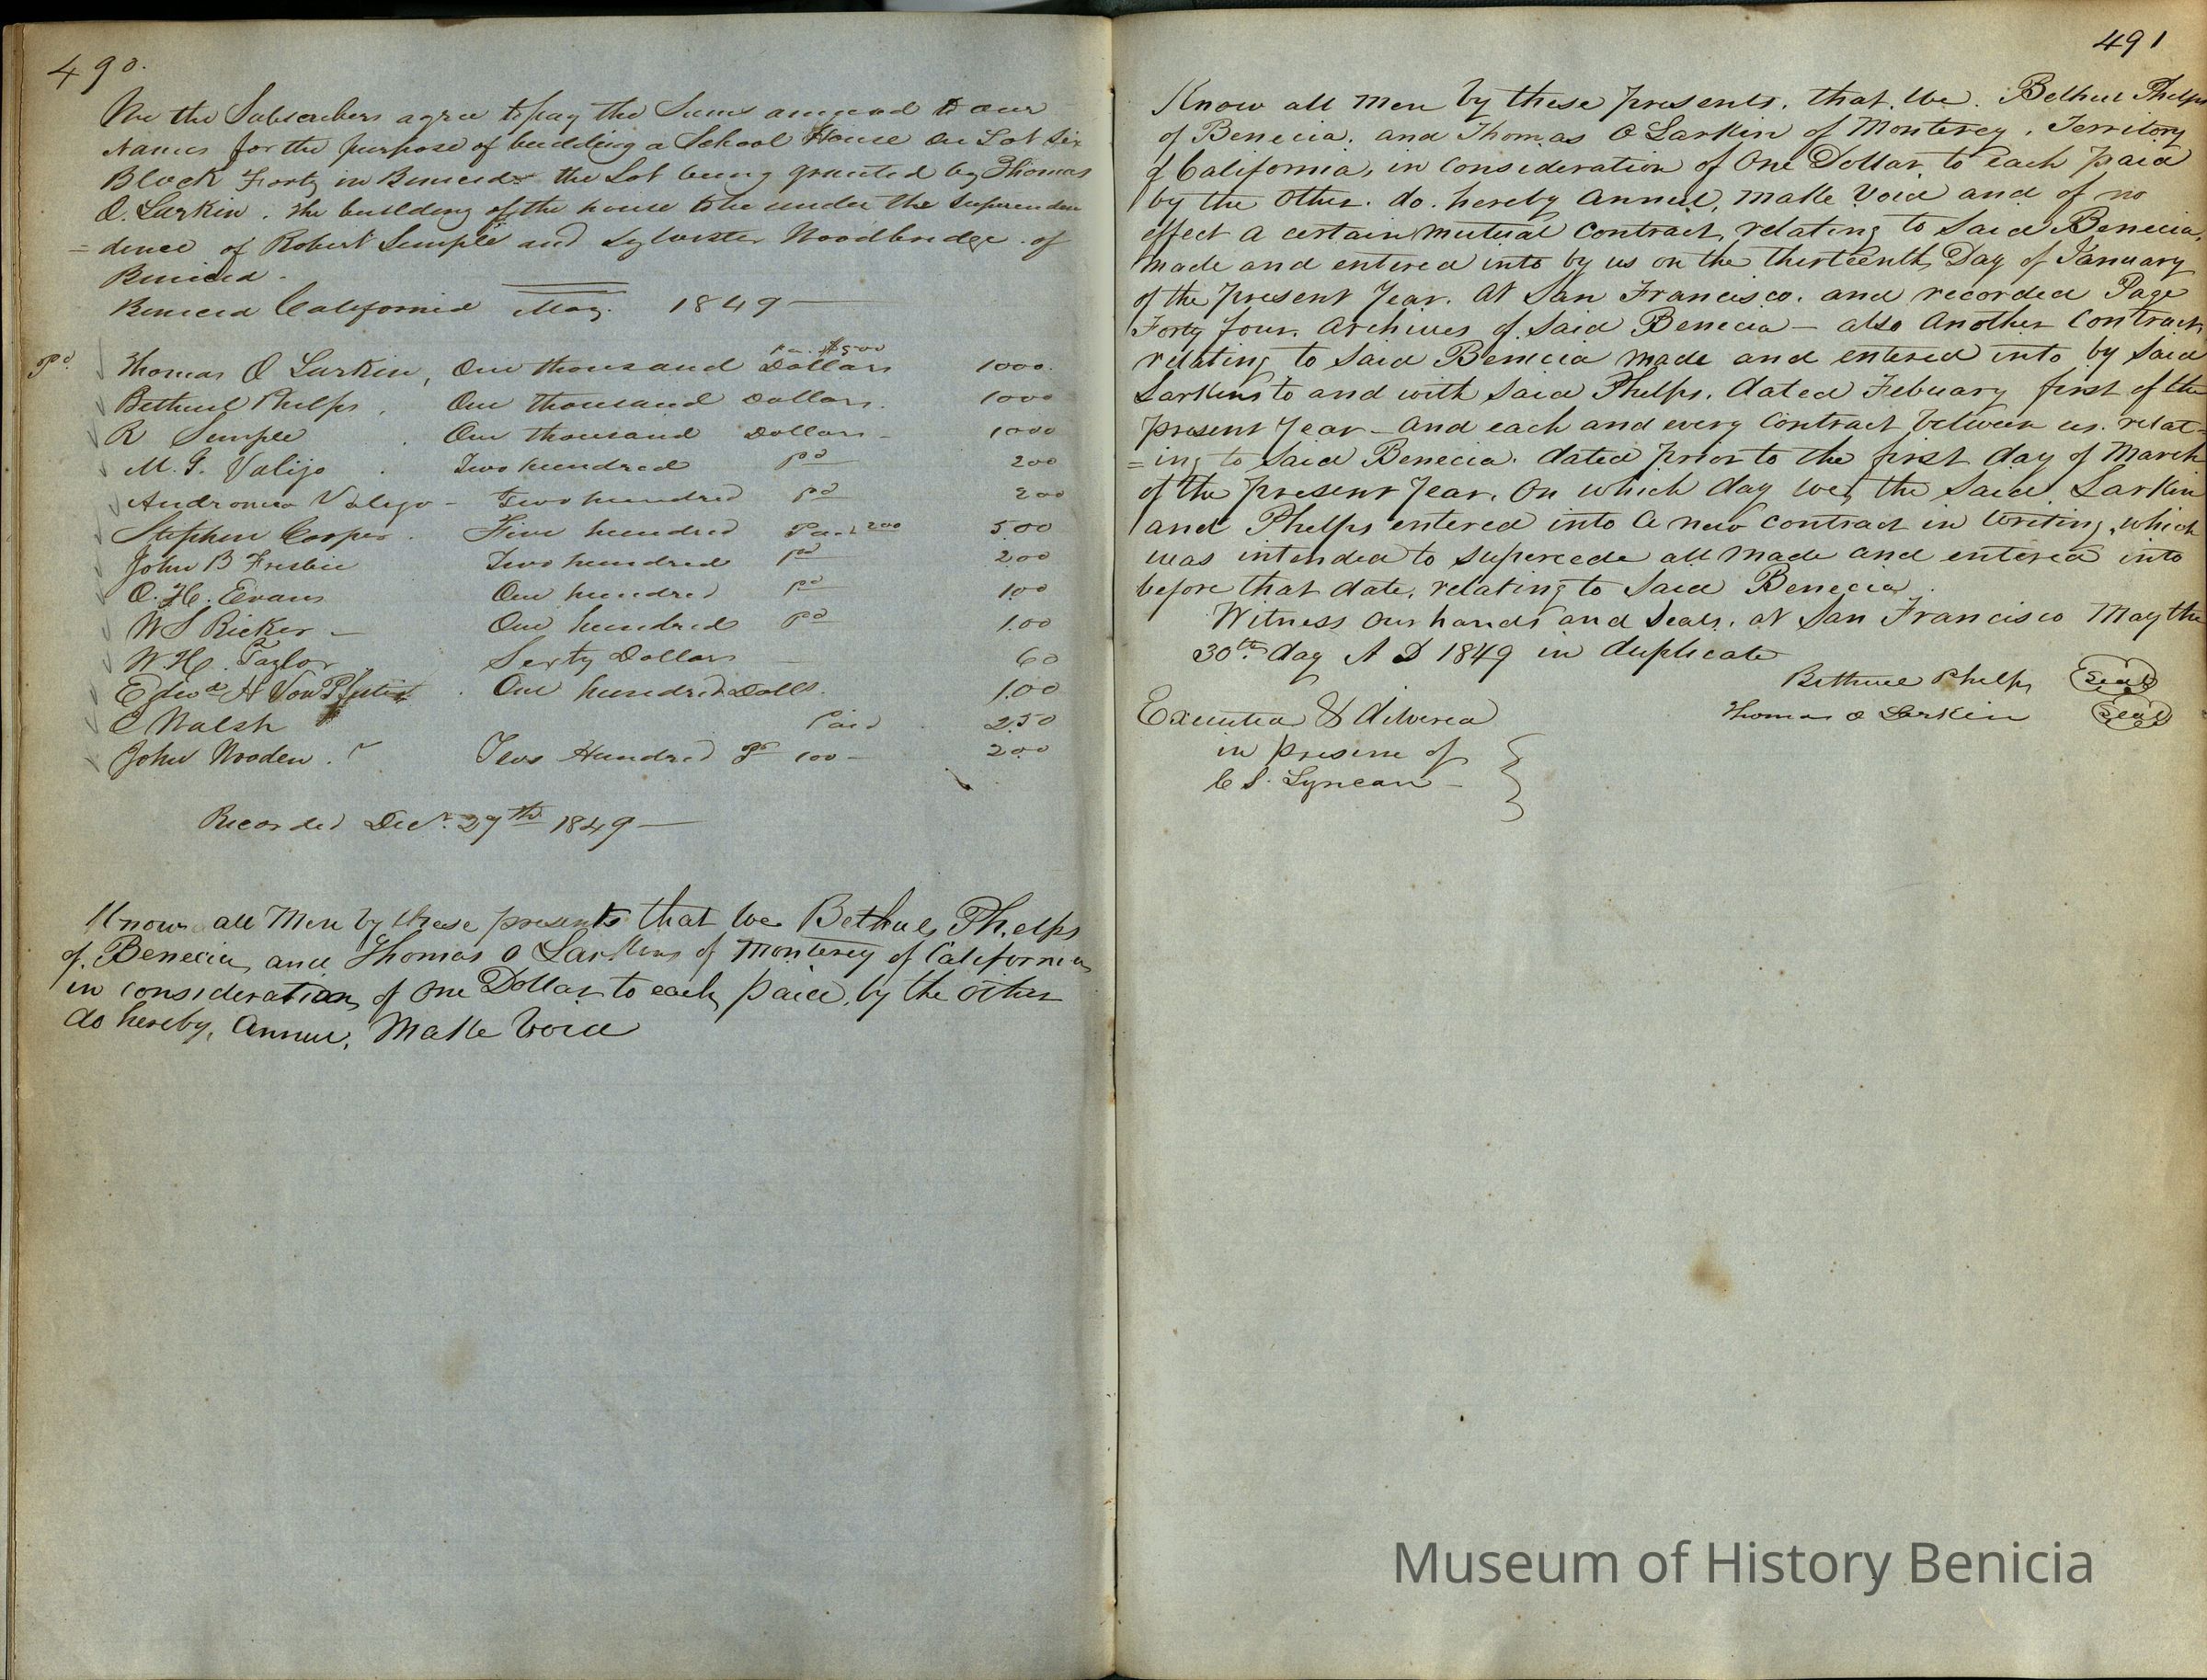 490.
We the Subscribers agree to pay the Sums annexed to our
Names for the purpose of building a School House on Lot Six
Block Forty in Benicia the Lot being granted by Thomas
O. Larkin. The building of the house to be under the Superenden
= dence of Robert Semple and Sylvester Woodbridge. of
Benicia.
Benicia California May. 1849
Pa. $500
Pd. Thomas O Larkin, One thousand Dollars 1000.
Bethuel Phelps, One thousand Dollars. 1000
R Semple One thousand Dollars 1000
M. G. Valijo Two hundred pd 200
Andronica Valejo - Two hundred pd 200
Stephen Cooper. Five hundred Paid 200 500
John B Frisbie Two hundred pd 200
O. H. Evans One hundred pd 100
W S Ricker One hundred pd 100
W. H. Taylor Sixty Dollars 60
Edwd H Von Pfister. One hundred Dolls. 100
C Walsh Paid 250
John Wooden. Two Hundred Pd 100 200
Recorded Decr. 27th 1849
Know all Men by these presents that we Bethuel Phelps
of Benecia and Thomas O Larkins of Monterey of California
in consideration of One Dollar to each paid, by the other
do hereby, Annul, Make Void
491
Know all Men by these presents. that. We. Bethuel Phelps
of Benecia. and Thomas O Larkin of Monterey. Territory
of California, in Consideration of One Dollar to each paid
by the other. do. hereby Annul, make Void and of no
effect a certain mutual Contract, relating to Said Benecia,
made and entered into by us on the thirteenth Day of January
of the present Year. At San Francisco. and recorded Page
Forty four. Archives of Said Benecia - also Another Contract
relating to Said Benicia made and entered into by Said
Larkins to and with Said Phelps. dated Febuary first of the
present Year - And each and every Contract between us. relat=
=ing to Said Benecia. dated prior to the first day of March
of the present Year. On which day we, the Said Larkin
and Phelps entered into a new Contract in Writing, which
was intended to supercede all made and entered into
before that date, relating to Said Benecia.
Witness our hands and Seals. at San Francisco May the
30th day A D 1849 in duplicate
Bethuel Phelps Seal
Thomas O Larkin Seal
Executed & delivered
in presence of
C S. Lyncan
Museum of History Benicia